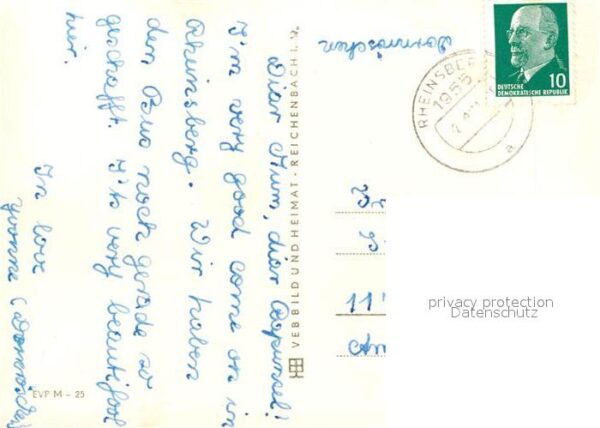 Dornröschen
Dear Mum, diar Rapunzel!
I'm very good come on in
Rheinsberg. Wir haben
den Bus noch gerade so
geschafft. I'ts very beautifool
hier.
In love
Yvonne (Dornröschen)
EVP M – 25
VEB BILD UND HEIMAT · REICHENBACH I. V.
DEUTSCHE
DEMOKRATISCHE REPUBLIK
10
RHEINSBERG
1955
a
11
privacy protection
Datenschutz